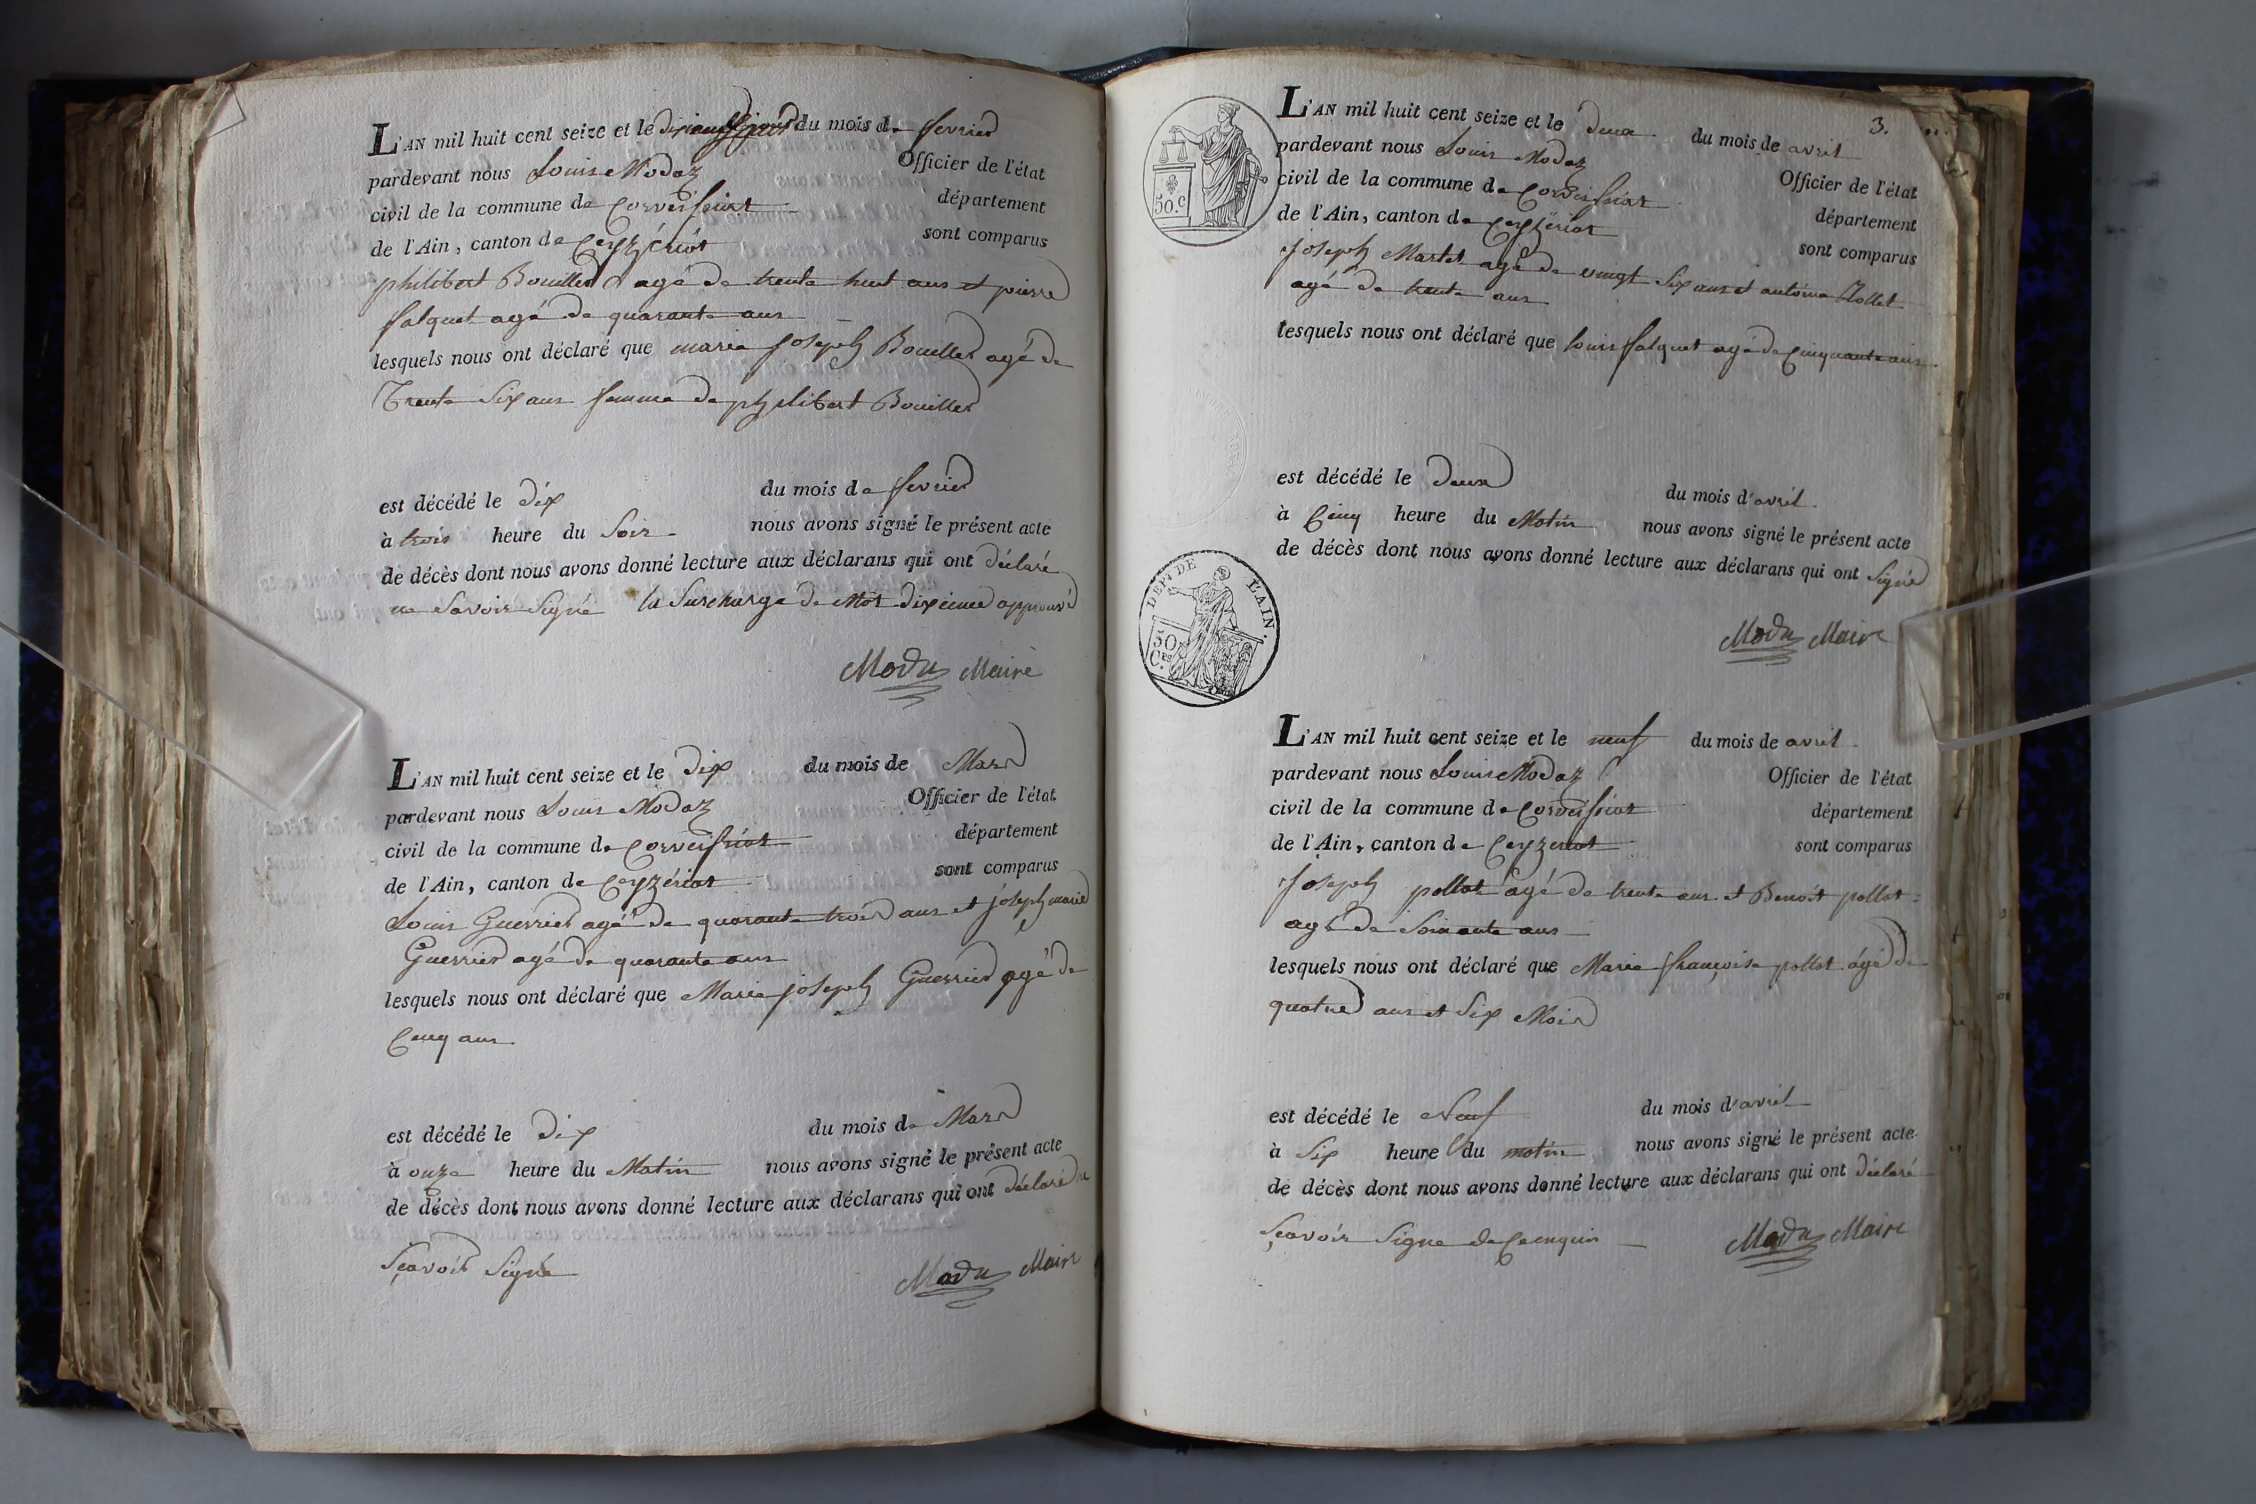 L'AN mil huit cent seize et le du mois de fevrier
pardevant nous Louis Modaz Officier de l'état
civil de la commune de Corveissiat département
de l'Ain, canton de Ceyzériat sont comparus
philibert Bouiller agé de trente huit ans et pierre
falquet agé de quarante ans
lesquels nous ont déclaré que marie joseph Bouiller agé de
Trente six ans femme de philibert Bouiller
est décédé le dix du mois de fevrier
à trois heure du Soir nous avons signé le présent acte
de décès dont nous avons donné lecture aux déclarans qui ont déclaré
ne Savoir Signé la Surcharge de Mot dixieme approuvé
Modaz Maire
L'AN mil huit cent seize et le dix du mois de Mars
pardevant nous Louis Modaz Officier de l'état
civil de la commune de Corveissiat département
de l'Ain, canton de Ceyzériat sont comparus
Louis Guerrier agé de quarante trois ans et joseph marie
Guerrier agé de quarante ans
lesquels nous ont déclaré que Marie joseph Guerrier agé de
Cinq ans
est décédé le dix du mois de Mars
à onze heure du Matin nous avons signé le présent acte
de décès dont nous avons donné lecture aux déclarans qui ont déclaré ne
Sçavoir Signé
Modaz Maire
3.
50.c
L'AN mil huit cent seize et le deux du mois de avril
pardevant nous Louis Modaz Officier de l'état
civil de la commune de Corveissiat département
de l'Ain, canton de Ceyzériat sont comparus
joseph Martet agé de vingt Six ans et antoine
agé de trente ans
lesquels nous ont déclaré que louis falquet agé de Cinquante ans
est décédé le deux du mois d'avril
à Cinq heure du Matin nous avons signé le présent acte
de décès dont nous avons donné lecture aux déclarans qui ont Signé
DEPt DE L'AIN.
50 Ces
Modaz Maire
L'AN mil huit cent seize et le neuf du mois de avril
pardevant nous Louis Modaz Officier de l'état
civil de la commune de Corveissiat département
de l'Ain, canton de Ceyzeriat sont comparus
Joseph pollet agé de trente ans et Benoit pollet
agé de Soixante ans
lesquels nous ont déclaré que Marie françoise pollet agé de
quatre ans et Six Mois
est décédé le Neuf du mois d'avril
à Six heure du matin nous avons signé le présent acte
de décès dont nous avons donné lecture aux déclarans qui ont déclaré
Sçavoir Signe de
Modaz Maire